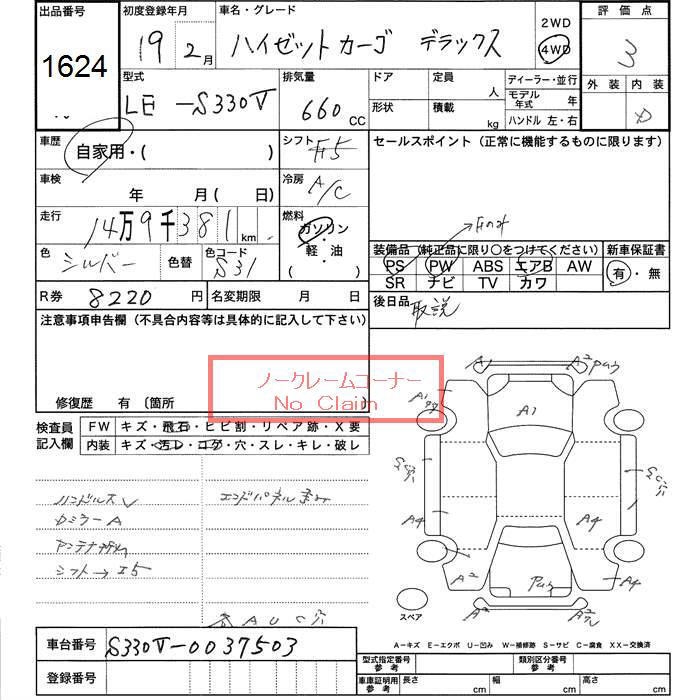 出品番号 初度登録年月 車名・グレード 2WD 評価点
1624 19 2月 ハイゼットカーゴ デラックス 4WD 3
型式 排気量 ドア 定員 ディーラー・並行 外装 内装
LE -S330V 660 CC 人 モデル年式 年
形状 積載 kg ハンドル 左・右
車歴 シフト セールスポイント(正常に機能するものに限ります)
自家用・( ) F5
車検 冷房
年 月( 日) A/C
走行 燃料
14万9千381km ガソリン・軽・油
( )
色 色替 色コード 装備品(純正品に限り○をつけてください) 新車保証書
シルバー S31 PS PW ABS エアB AW 有・無
SR ナビ TV カワ
R券 8220円 名変期限 月 日 後日品 取説
注意事項申告欄(不具合内容等は具体的に記入して下さい)
ノークレームコーナー
No Claim
修復歴 有 〔箇所
検査員記入欄 FW キズ・飛石・ヒビ割・リペア跡・X要
内装 キズ・汚レ・コゲ・穴・スレ・キレ・破レ
A1 A2
A1
A1
A4 A4
A2 A4
A2 A2
ハンドルス エンドパネル
ミラーA
アンテナ
シフト→I5
A U C
スペア
A-キズ E-エクボ U-凹み W-補修跡 S-サビ C-腐食 XX-交換済
車台番号 S330V-0037503
型式指定番号 参考 類別区分番号 参考
登録番号 車庫証明用 参考 長さ cm 幅 cm 高さ cm